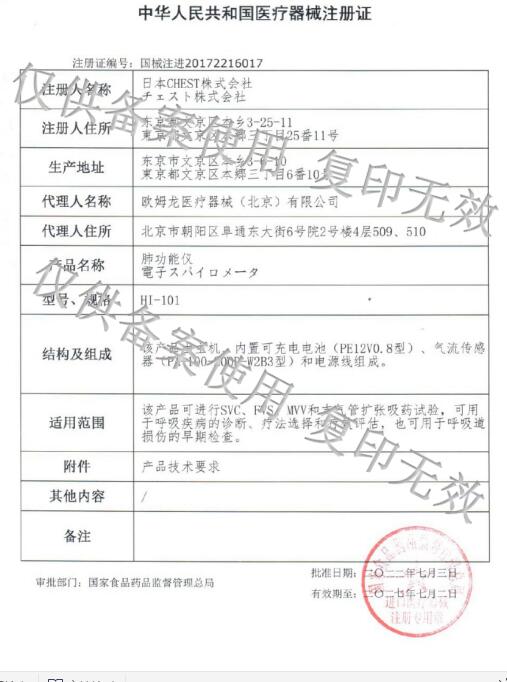 中华人民共和国医疗器械注册证
注册证编号：国械注进20172216017
注册人名称
日本CHEST株式会社
チェスト株式会社
注册人住所
东京都文京区本乡3-25-11
東京都文京区本郷三丁目25番11号
生产地址
东京市文京区本乡3-6-10
東京都文京区本郷三丁目6番10号
代理人名称
欧姆龙医疗器械（北京）有限公司
代理人住所
北京市朝阳区阜通东大街6号院2号楼4层509、510
产品名称
肺功能仪
電子スパイロメータ
型号、规格
HI-101
结构及组成
该产品由主机，内置可充电电池（PE12V0.8型）、气流传感
器（ W2B3型）和电源线组成。
适用范围
该产品可进行SVC、 MVV和支气管扩张吸药试验，可用
于呼吸疾病的诊断、疗法选择和 评估，也可用于呼吸道
损伤的早期检查。
附件
产品技术要求
其他内容
/
备注
批准日期：二〇二二年七月三日
审批部门：国家食品药品监督管理总局
有效期至：二〇二七年七月二日
进口医疗器械
注册专用章
仅供备案使用 复印无效
仅供备案使用 复印无效